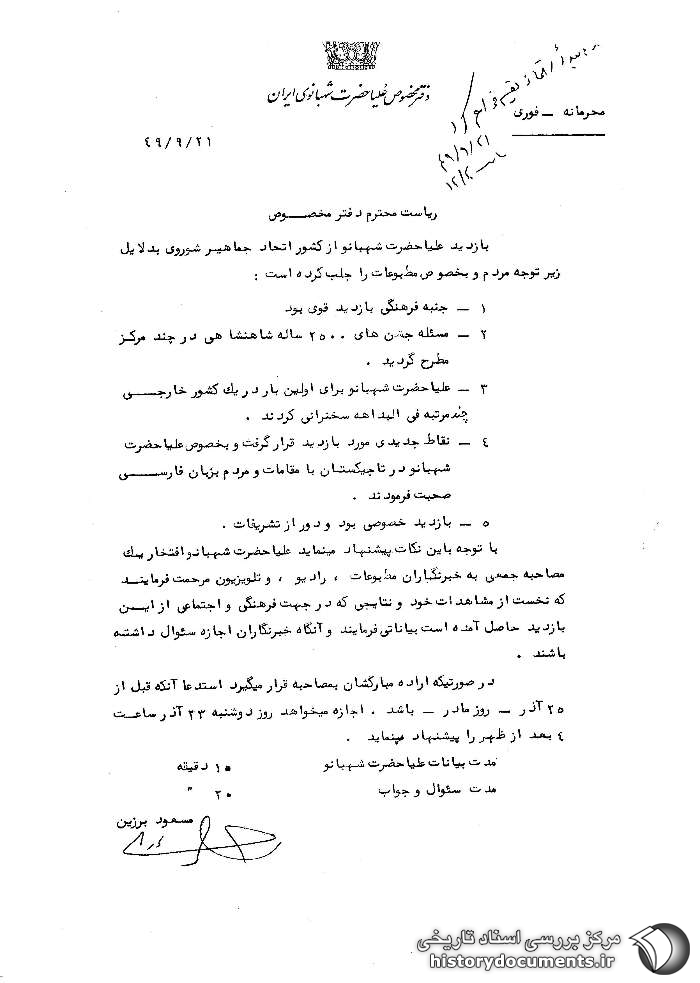 دفتر مخصوص علیاحضرت شهبانوی ایران
محرمانه ــ فوری
۴۹/۹/۲۱
۴۹/۹/۲۱
ریاست محترم دفتر مخصــوص
بازدید علیاحضرت شهبانو از کشور اتحاد جماهیـر شوروی بدلایل
زیر توجه مردم و بخصوص مطبوعات را جلب کرده است :
۱ ــ جنبه فرهنگی بازدید قوی بود
۲ ــ مسئله جشن های ۲۵۰۰ ساله شاهنشاهی در چند مرکز
مطرح گردید .
۳ ــ علیاحضرت شهبانو برای اولین بار در یک کشور خارجــی
چند مرتبه فی البداهه سخنرانی کردند .
۴ ــ نقاط جدیدی مورد بازدید قرار گرفت و بخصوص علیاحضرت
شهبانو در تاجیکستان با مقامات و مردم بزبان فارســی
صحبت فرمودند .
۵ ــ بازدید خصوصی بود و دور از تشریفات .
با توجه باین نکات پیشنهاد مینماید علیاحضرت شهبانو افتخار یک
مصاحبه جمعی به خبرنگاران مطبوعات ، رادیو ، و تلویزیون مرحمت فرماینـد
که نخست از مشاهدات خود و نتایجی که در جهت فرهنگی و اجتماعی از ایــن
بازدید حاصل آمده است بیاناتی فرمایند و آنگاه خبرنگاران اجازه سئوال داشته
باشند .
در صورتیکه اراده مبارکشان بمصاحبه قرار میگیرد استدعا آنکه قبل از
۲۵ آذر ــ روز مادر ــ باشد . اجازه میخواهد روز دوشنبه ۲۳ آذر ساعت
۴ بعد از ظهر را پیشنهاد مینماید .
مدت بیانات علیاحضرت شهبانو ۱۰ دقیقه
مدت سئوال و جواب ۲۰ "
مسعود برزین
مرکز بررسی اسناد تاریخی
historydocuments.ir